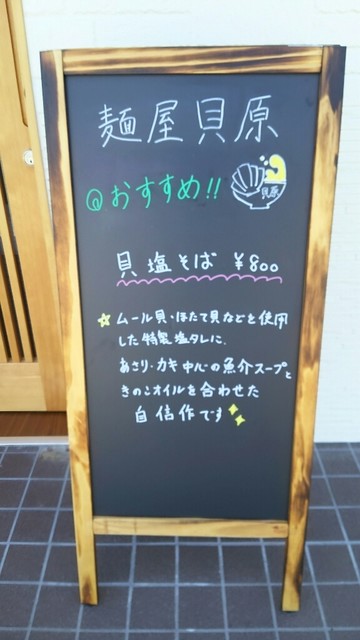 麺屋貝原
@おすすめ!!
貝原
貝塩そば ¥800
☆ムール貝・ほたて貝などを使用
した特製塩タレに、
あさり・カキ中心の魚介スープと
きのこオイルを合わせた
自信作です